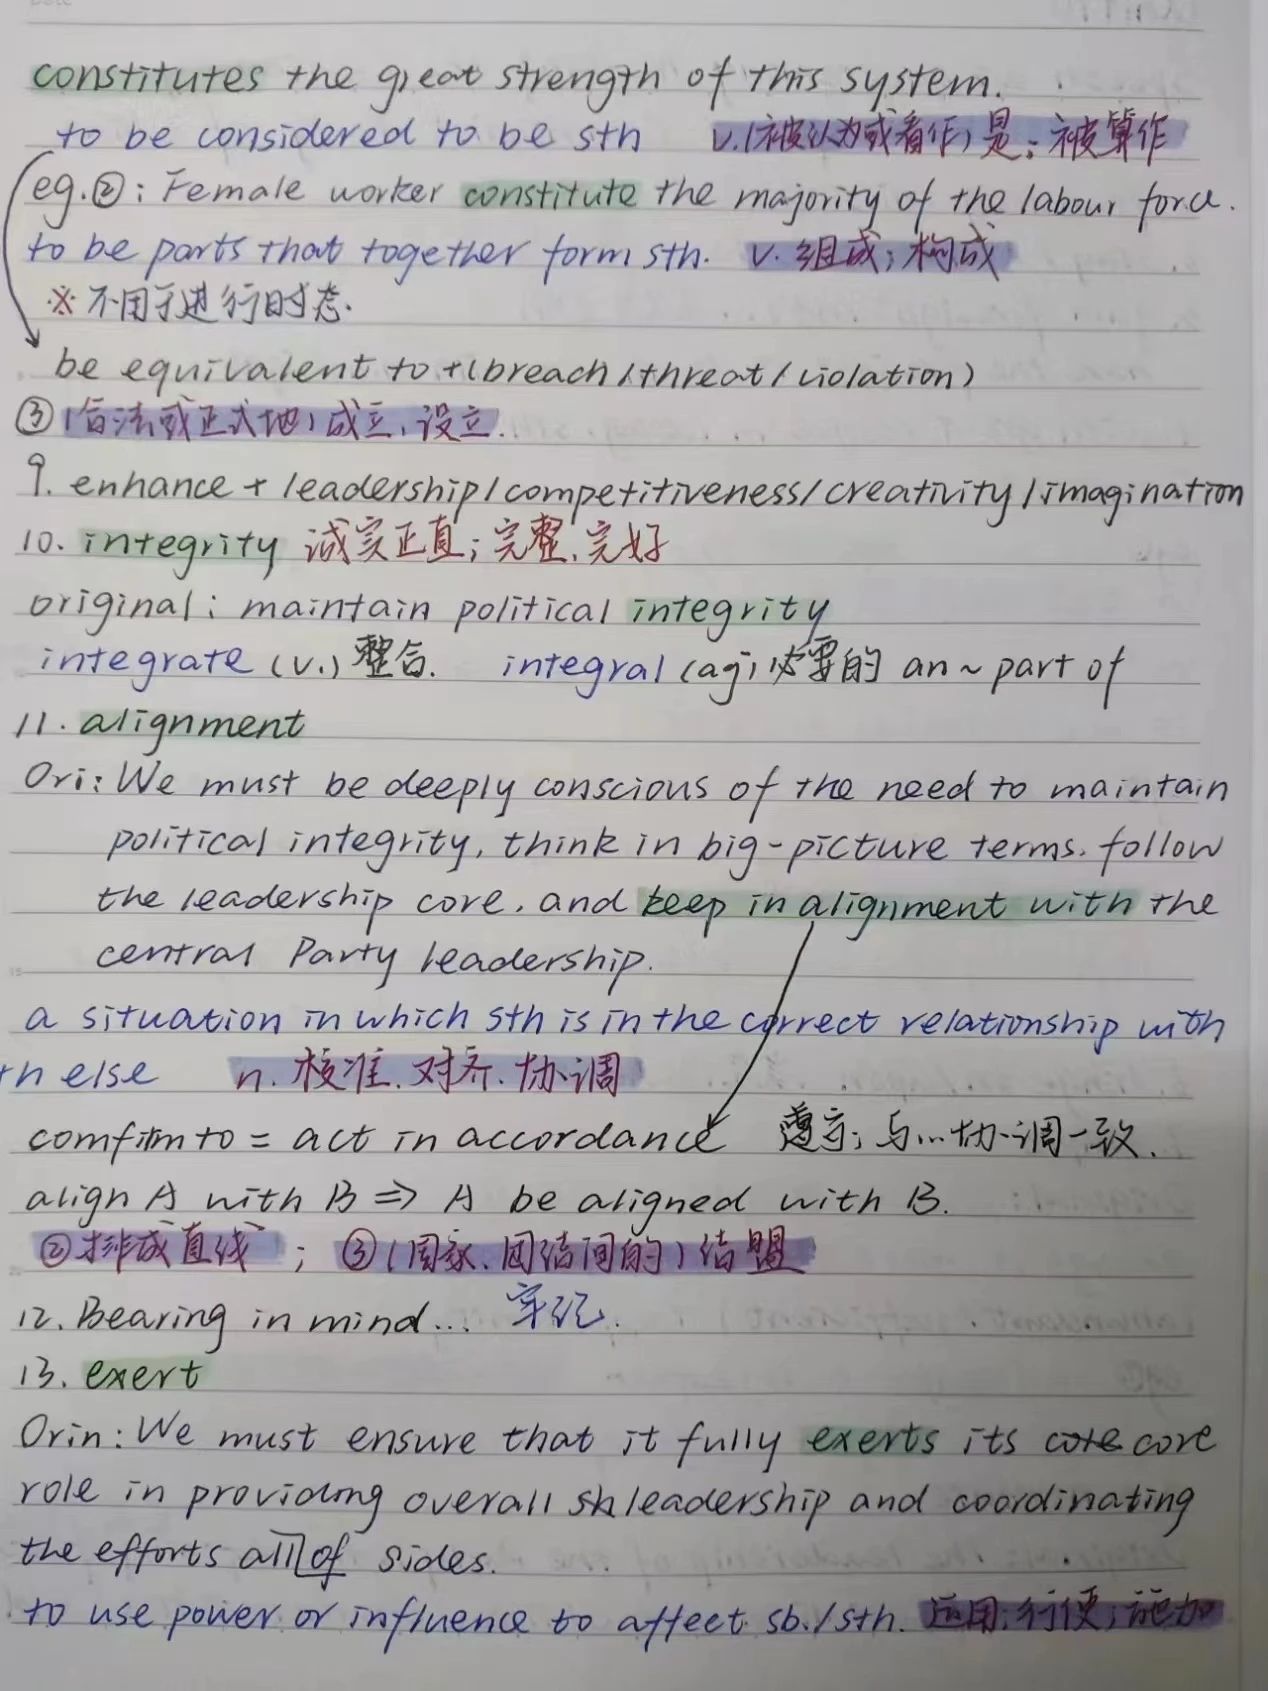 constitutes the great strength of this system.
to be considered to be sth v.(被认为或看作)是;被算作
eg.②: Female worker constitute the majority of the labour force.
to be parts that together form sth. v.组成;构成
※不用于进行时态.
be equivalent to +(breach/threat/violation)
③(合法或正式地)成立,设立.
9. enhance + leadership/competitiveness/creativity/imagination
10. integrity 诚实正直;完整、完好
original: maintain political integrity
integrate (v.) 整合. integral (adj)必要的 an ~ part of
11. alignment
Ori: We must be deeply conscious of the need to maintain
political integrity, think in big-picture terms, follow
the leadership core, and keep in alignment with the
central Party leadership.
a situation in which sth is in the correct relationship with
th else n.校准、对齐、协调
to = act in accordance 遵守;与…协调一致.
align A with B ⇒ A be aligned with B.
②排成直线;③(国家、团结间的)结盟
12. Bearing in mind... 牢记.
13. exert
Orin: We must ensure that it fully exerts its core core
role in providing overall leadership and coordinating
the efforts all of sides.
to use power or influence to affect sb./sth. 运用;行使;施加